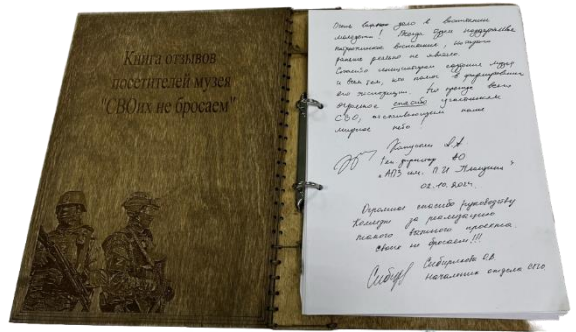 Книга отзывов
посетителей музея
"СВОих не бросаем"
Очень важное дело в воспитании
молодежи! Всегда будем поддерживать
патриотическое воспитание, которого
раньше реально не хватало.
Спасибо инициаторам создания музея
и всем тем, кто помог в формировании
его экспозиции. Но прежде всего
огромное спасибо участникам
СВО, отстаивающим наше
мирное небо!
Капустин А.А.
Ген. директор АО
"АПЗ им. П.И. Пландина"
02.10.2024
Огромное спасибо руководству
Колледжа за реализацию
такого важного проекта.
Своих не бросаем!!!
начальник отдела